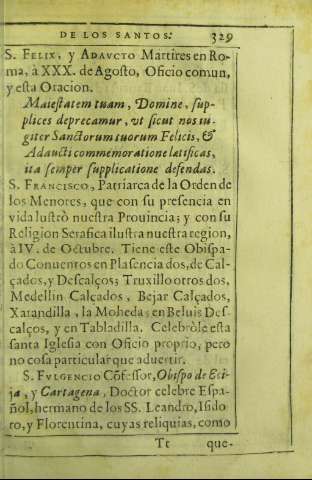 DE LOS SANTOS. 329
S. FELIX, y ADAVCTO Martires en Ro-
ma, à XXX. de Agosto, Oficio comun,
y esta Oracion.
Maiestatem tuam, Domine, sup-
plices deprecamur, vt sicut nos iu-
giter Sanctorum tuorum Felicis, &
Adaucti commemoratione latificas,
ita semper supplicatione defendas.
S. FRANCISCO, Patriarca de la Orden de
los Menores, que con su presencia en
vida lustrò nuestra Prouincia; y con su
Religion Serafica ilustra nuestra region,
à IV. de Octubre. Tiene este Obispa-
do Conuentos en Plasencia dos, de Cal-
çados, y Descalços; Truxillo otros dos,
Medellin Calçados, Bejar Calçados,
Xarandilla, la Moheda; en Beluis Des-
calços, y en Tabladilla. Celebròle esta
santa Iglesia con Oficio proprio, pero
no cosa particular que aduertir.
S. FVLGENCIO Cõfessor, Obispo de Eci-
ja, y Cartagena, Doctor celebre Espa-
ñol, hermano de los SS. Leandro, Isido
ro, y Florentina, cuyas reliquias, como
Tt que-